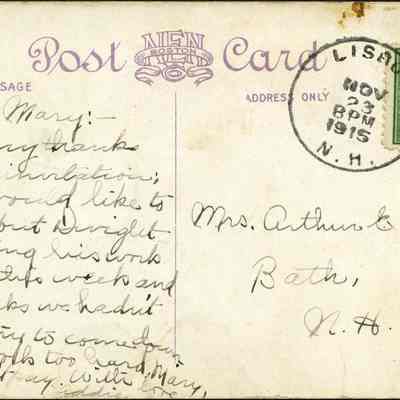 Post Card
NEN
BOSTON
SSAGE
ADDRESS ONLY
LISBO
NOV
23
8 PM
1915
N. H.
Mary:-
ny thanks
invitation;
would like to
but Dwight
ing his work
this week and
ks we hadn't
try to come down
work too hard, Mary,
ay. With love
Eddie
Mrs. Arthur E
Bath,
N. H.